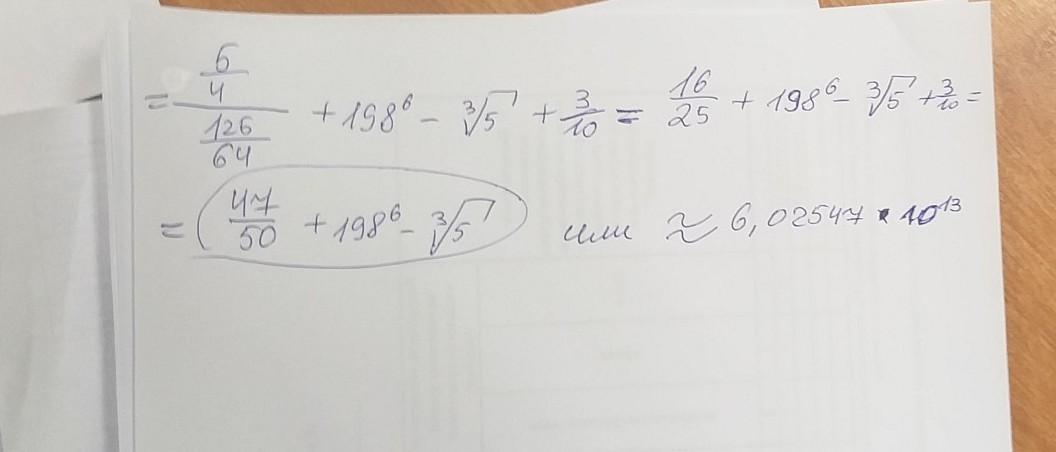 = 6/4 / 126/64 + 198⁶ - ∛5 + 3/10 = 16/25 + 198⁶ - ∛5 + 3/10 =
= 47/50 + 198⁶ - ∛5 или ≈ 6,02547 • 10¹³